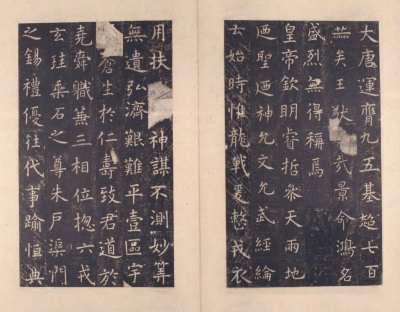 大唐運膺九五基超七百
矣王猷景命鴻名
盛烈無得稱焉
皇帝欽明睿哲參天兩地
迺聖迺神允文允武經綸
云始時惟龍戰爰整戎衣
用扶神謀不測妙筭
無遺弘濟艱難平壹區宇
蒼生於仁壽致君道於
堯舜職兼三相位揔六戎
玄珪乘石之尊朱戶渠門
之錫禮優往代事踰恒典